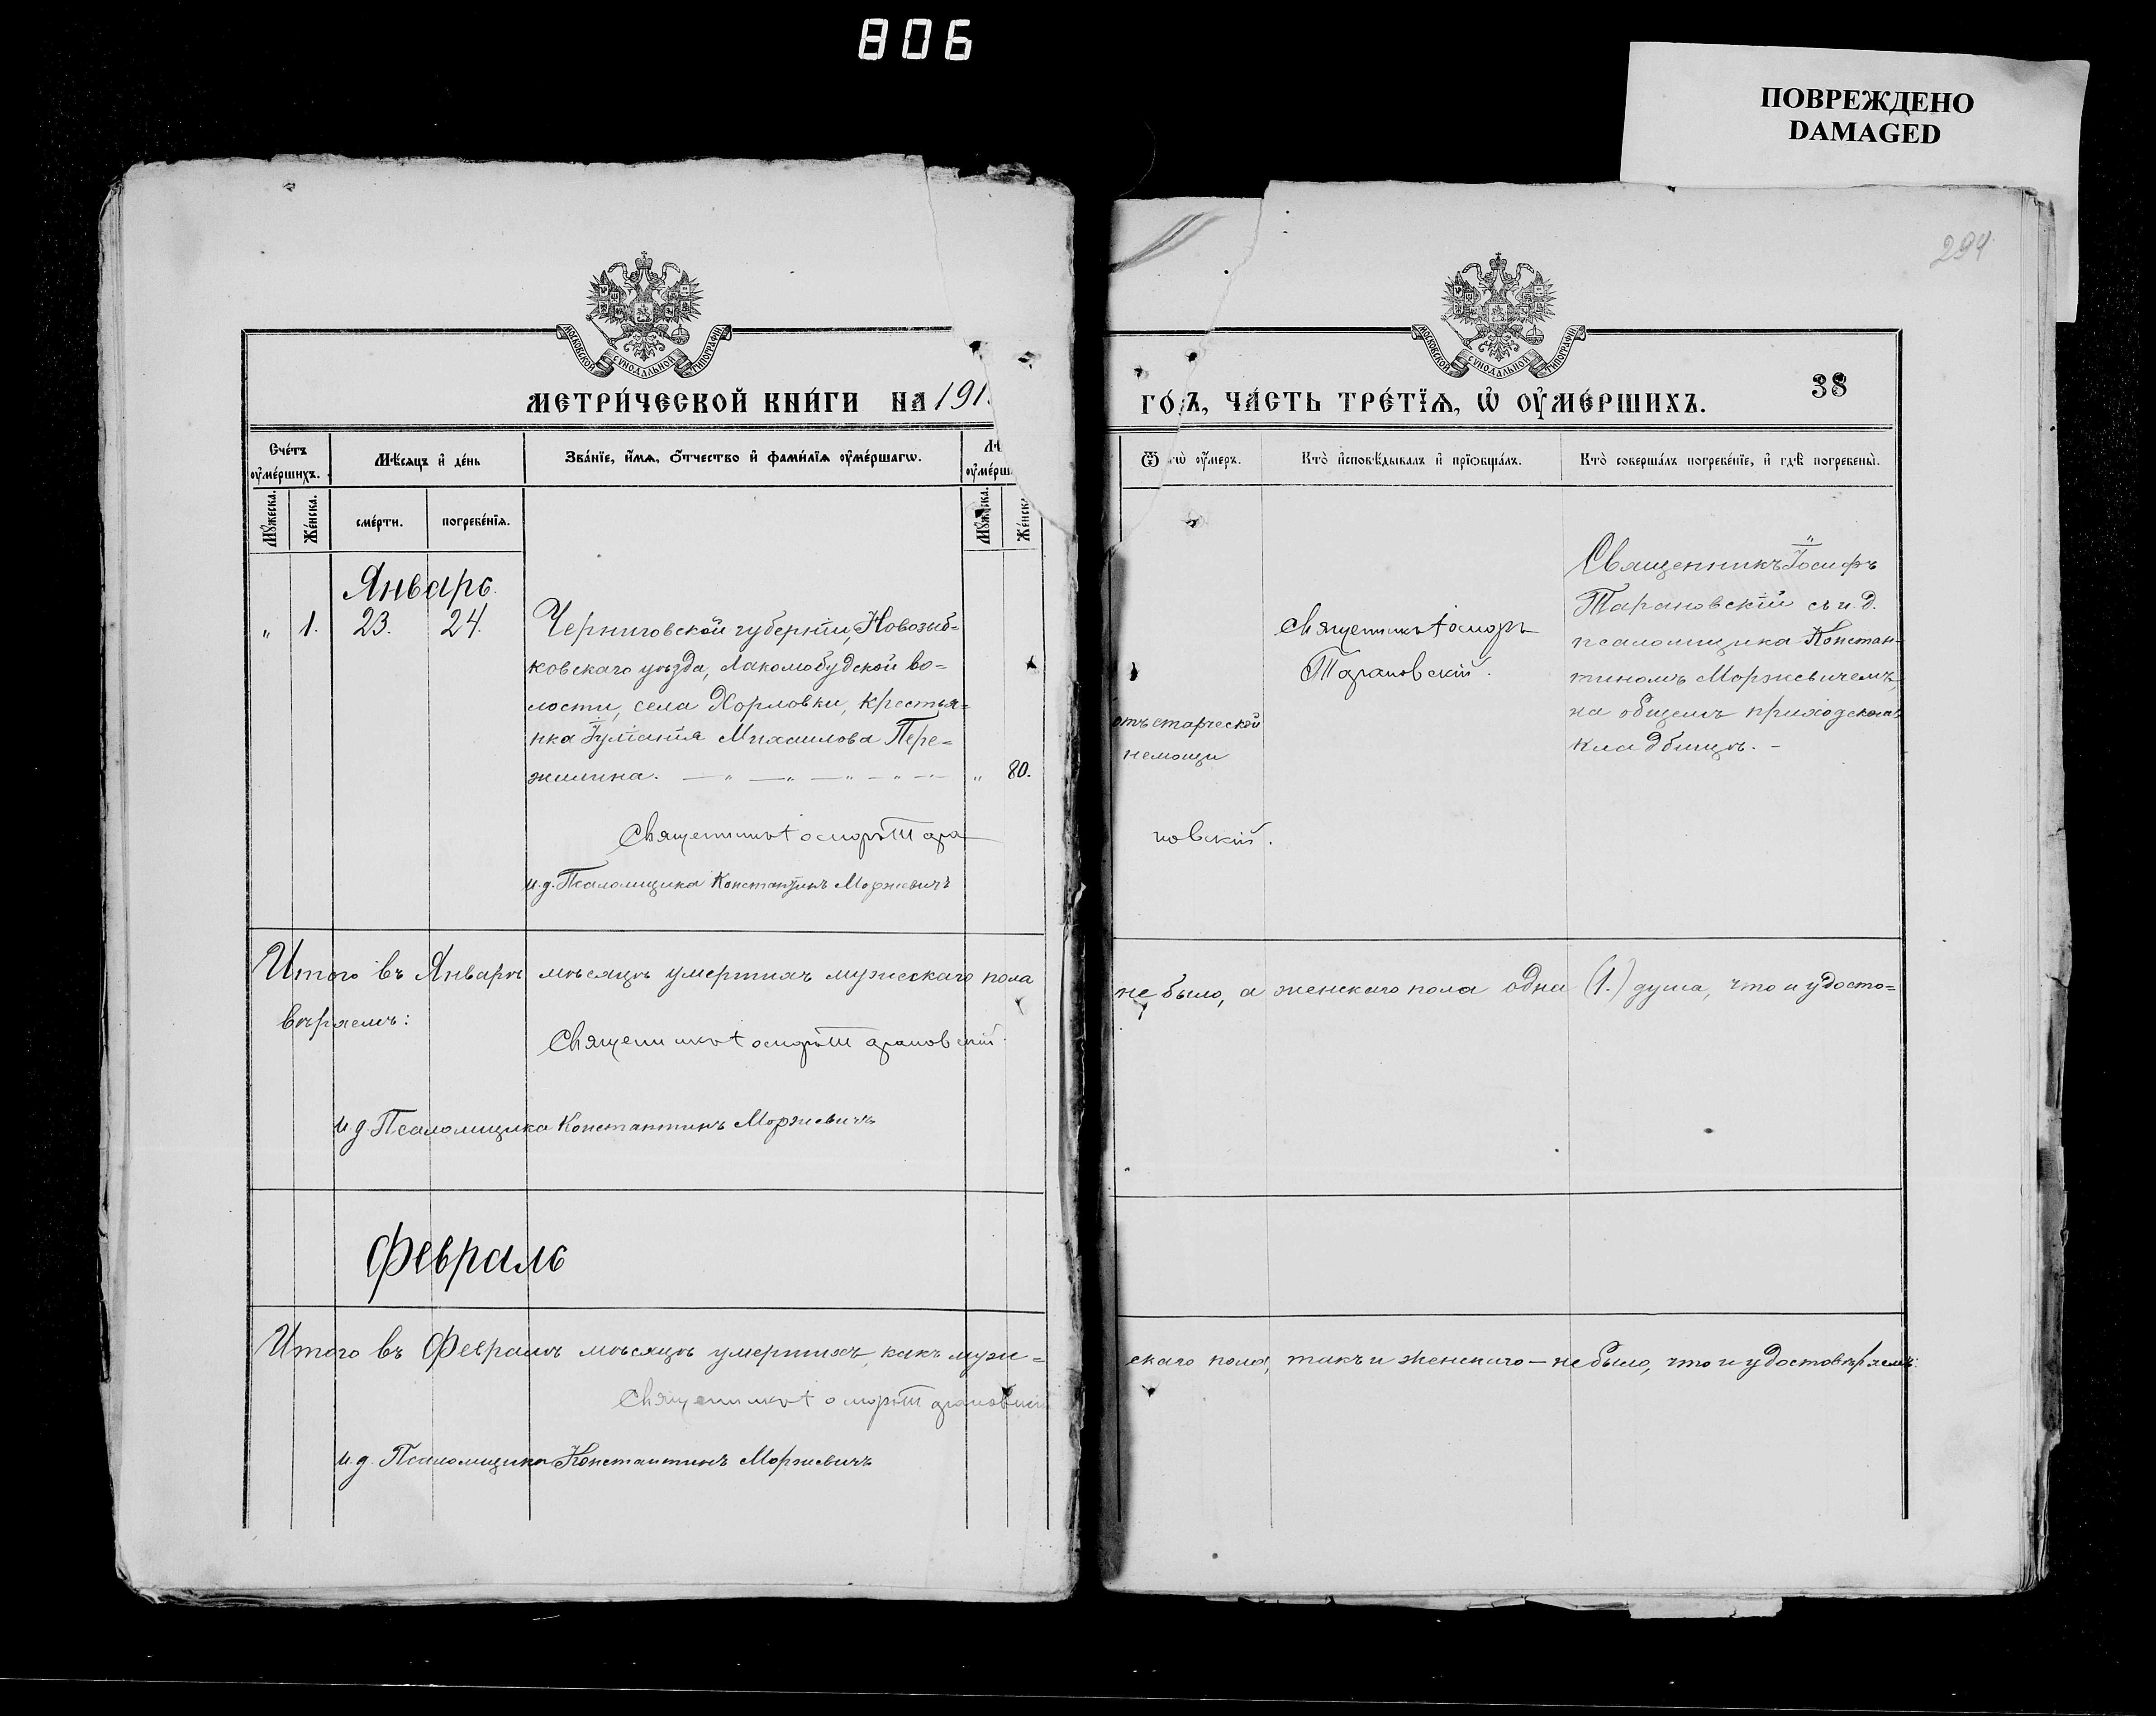 806
ПОВРЕЖДЕНО
DAMAGED
294
МОСКОВСКОЙ СѴНОДАЛЬНОЙ ТИПОГРАФІИ
МОСКОВСКОЙ СѴНОДАЛЬНОЙ ТИПОГРАФІИ
МЕТРИ́ЧЕСКОЙ КНИ́ГИ НА 191
ГО́ДЪ, ЧА́СТЬ ТРЕ́ТЇѦ, Ѡ҆ ОУ҆МЕ́РШИХЪ.
38
Сче́тъ оу҆ме́ршихъ.
Мѣ́сяцъ и҆ де́нь
Зва́нїе, и҆́мя, ѻ҆́тчество и҆ фами́лїя оу҆ме́ршагѡ.
Мꙋ́жеска.
Же́нска.
сме́рти.
погребе́нїя.
Мꙋ́жеска.
Кто̀ и҆сповѣ́дывалъ и҆ прїѻбща́лъ.
Кто̀ соверша́лъ погребе́нїе, и҆ гдѣ̀ погребены̀.
Январь.
„ 1. 23. 24. Черниговской губерніи, Новозыб-
ковскаго уѣзда, Лакомобудской во-
лости, села Хормовки, крестья-
нка Іуліанія Михаилова Пере-
жилина. „ 80.
Священникъ Іосифъ Тара
и.д. Псаломщика Константинъ Моржевичъ
отъ старческой
немощи
новскій.
Священникъ Іосифъ
Тарановскій.
Священникъ Іосифъ
Тарановскій съ и.д.
псаломщика Констан-
тиномъ Моржевичемъ,
на общемъ приходскомъ
кладбищѣ. –
Итого въ Январѣ мѣсяцѣ умершихъ мужескаго пола
не было, а женскаго пола одна (1.) душа, что и удосто-
вѣряемъ:
Священникъ Іосифъ Тарановскій.
и.д. Псаломщика Константинъ Моржевичъ
Февраль
Итого въ Февралѣ мѣсяцѣ умершихъ, какъ муже-
скаго пола, такъ и женскаго – не было, что и удостовѣряемъ:
Священникъ Іосифъ Тарановскій
и.д. Псаломщика Константинъ Моржевичъ